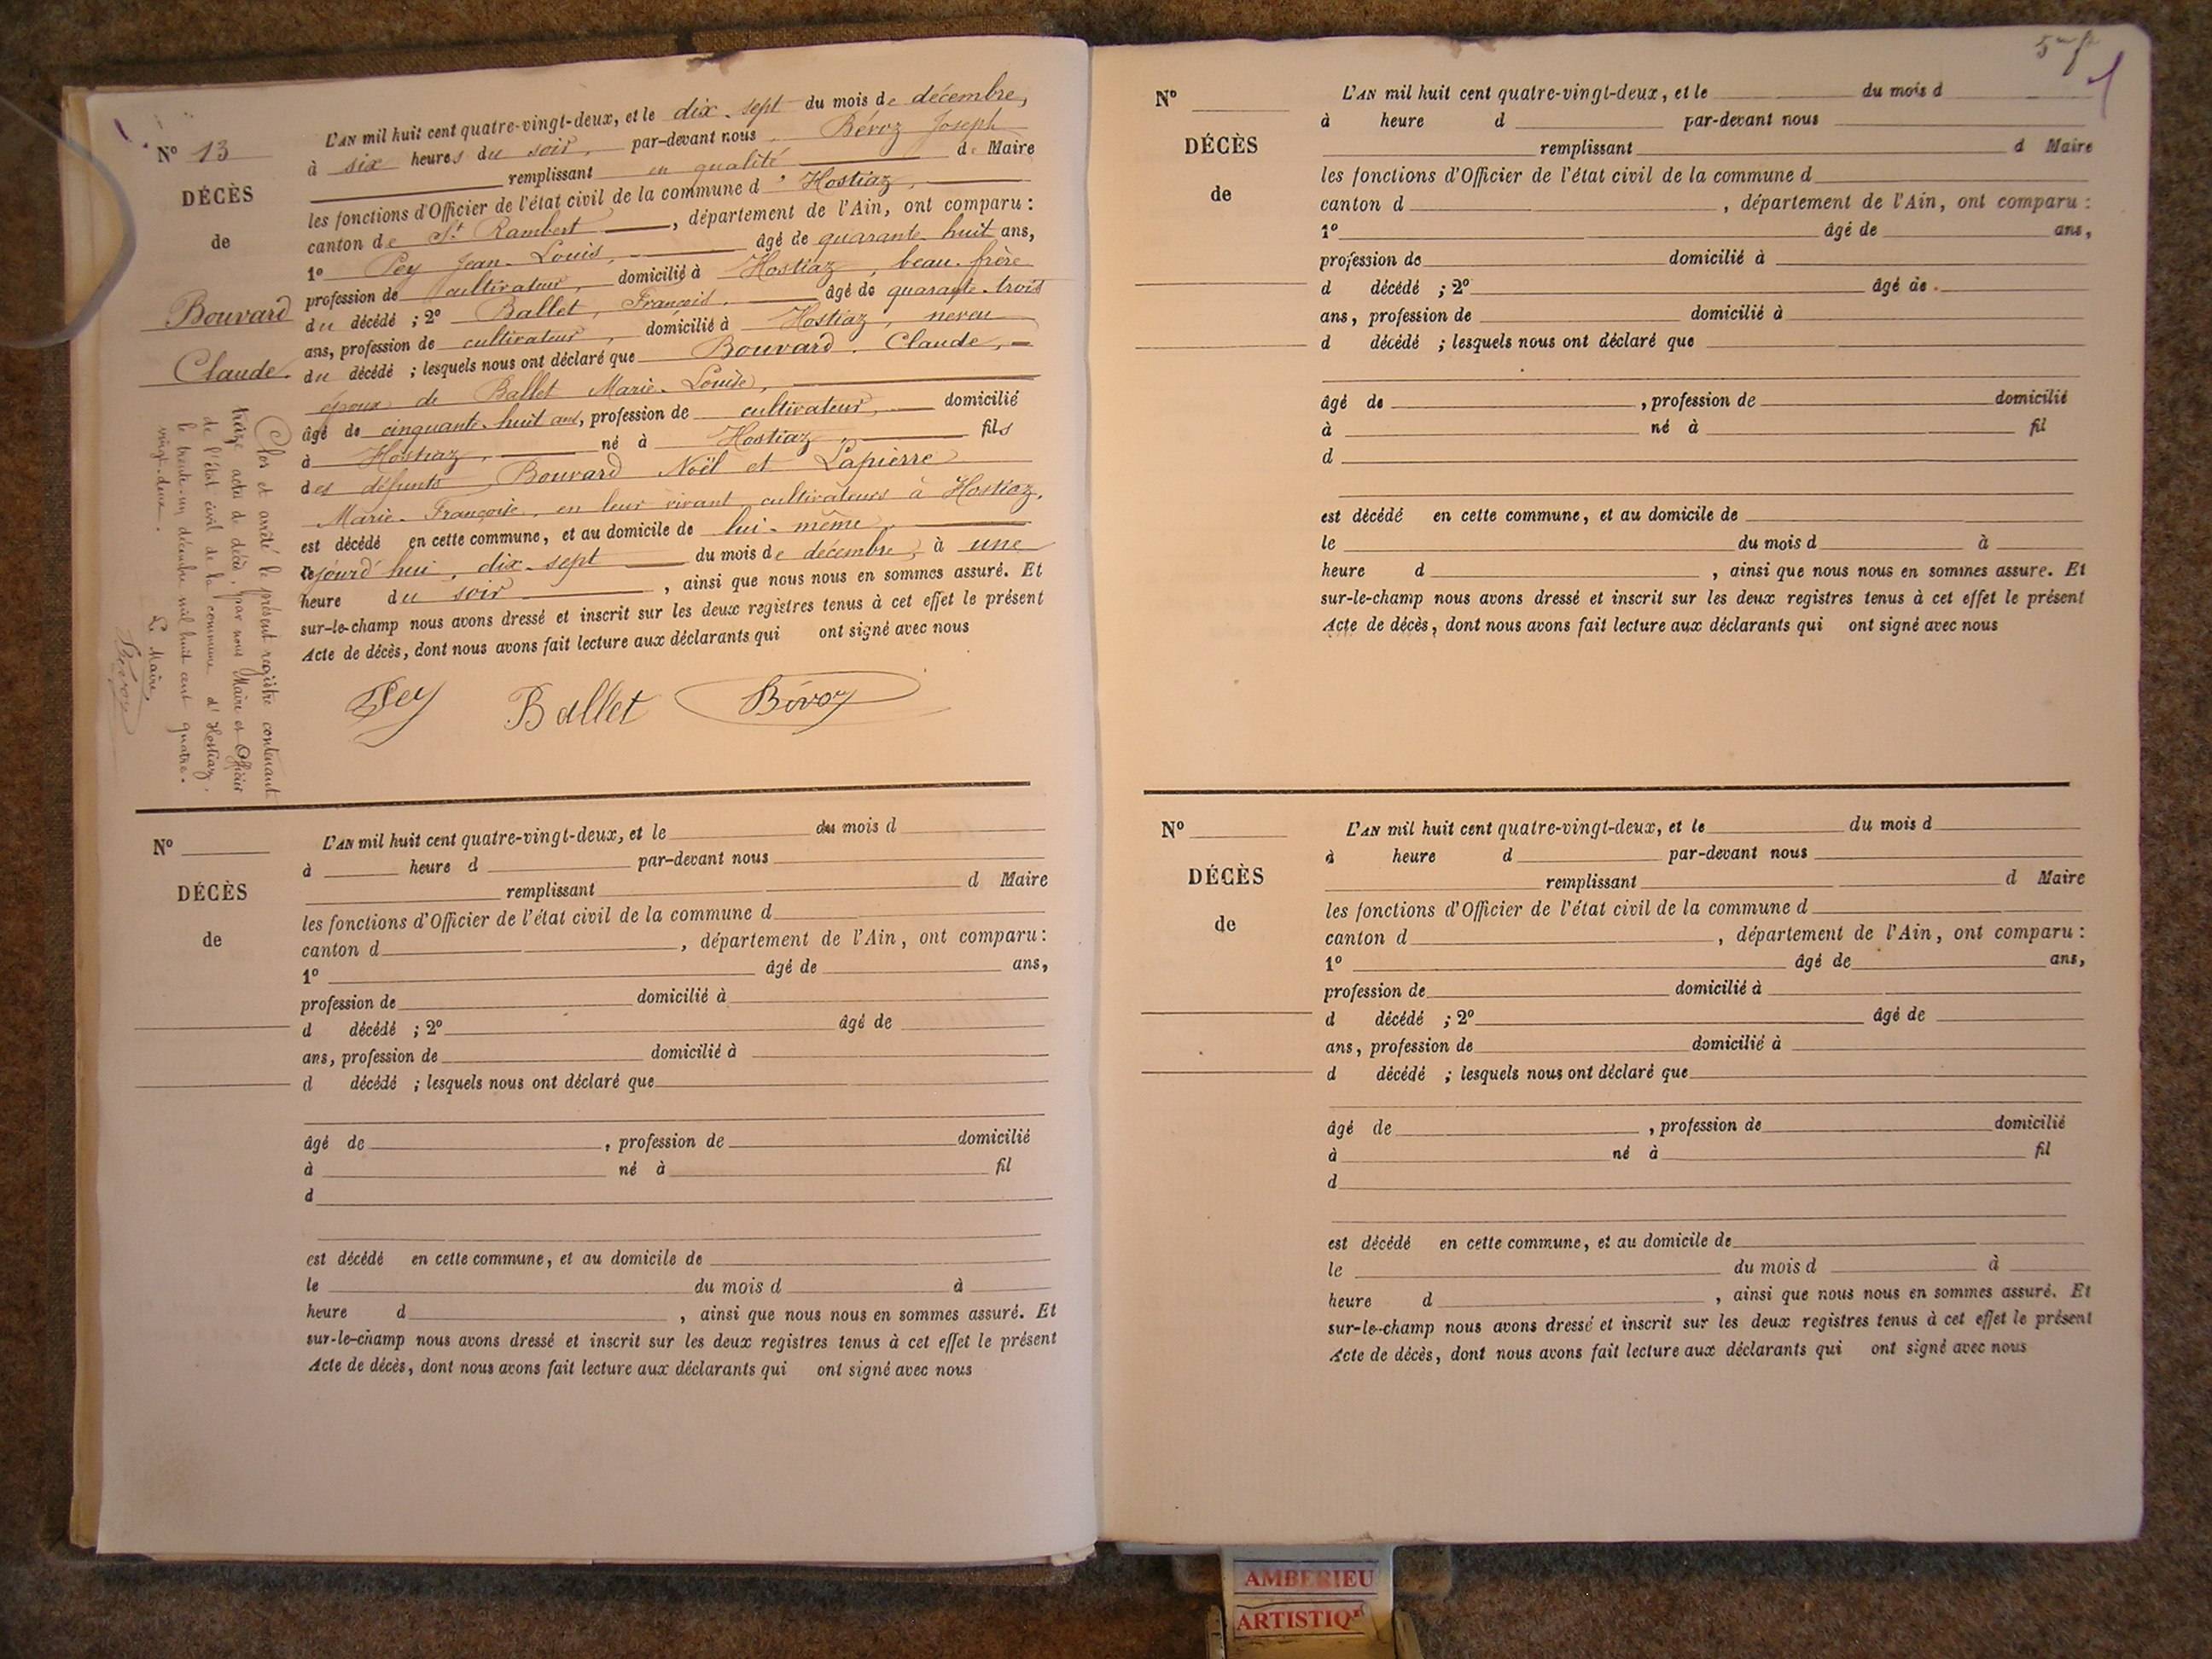 N° 13
DÉCÈS
de
Bouvard
Claude.
L'AN mil huit cent quatre-vingt-deux, et le dix-sept du mois de décembre,
à six heures du soir, par-devant nous Béroz Joseph
remplissant en qualité de Maire
les fonctions d'Officier de l'état civil de la commune d'Hostiaz,
canton de St Rambert, département de l'Ain, ont comparu :
1° Pey Jean-Louis, âgé de quarante-huit ans,
profession de cultivateur, domicilié à Hostiaz, beau-frère
du décédé ; 2° Ballet, François, âgé de quarante-trois
ans, profession de cultivateur, domicilié à Hostiaz, neveu
du décédé ; lesquels nous ont déclaré que Bouvard, Claude,
époux de Ballet Marie-Louise,
âgé de cinquante-huit ans, profession de cultivateur, domicilié
à Hostiaz, né à Hostiaz, fils
des défunts Bouvard Noël et Lapierre
Marie-Françoise, en leur vivant cultivateurs à Hostiaz,
est décédé en cette commune, et au domicile de lui-même,
cejourd'hui, dix-sept du mois de décembre, à une
heure du soir, ainsi que nous nous en sommes assuré. Et
sur-le-champ nous avons dressé et inscrit sur les deux registres tenus à cet effet le présent
Acte de décès, dont nous avons fait lecture aux déclarants qui ont signé avec nous
Pey Ballet Béroz
Clos et arrêté le présent registre contenant
treize actes de décès, par nous Maire et Officier
de l'état civil de la commune d'Hostiaz,
le trente-un décembre mil huit cent quatre-
vingt-deux.
Le Maire,
Béroz
N°
DÉCÈS
de
L'AN mil huit cent quatre-vingt-deux, et le du mois d
à heure d par-devant nous
remplissant d Maire
les fonctions d'Officier de l'état civil de la commune d
canton d , département de l'Ain, ont comparu :
1° âgé de ans,
profession de domicilié à
d décédé ; 2° âgé de
ans, profession de domicilié à
d décédé ; lesquels nous ont déclaré que
âgé de , profession de domicilié
à né à fil
d
est décédé en cette commune, et au domicile de
le du mois d à
heure d , ainsi que nous nous en sommes assuré. Et
sur-le-champ nous avons dressé et inscrit sur les deux registres tenus à cet effet le présent
Acte de décès, dont nous avons fait lecture aux déclarants qui ont signé avec nous
N°
DÉCÈS
de
L'AN mil huit cent quatre-vingt-deux, et le du mois d
à heure d par-devant nous
remplissant d Maire
les fonctions d'Officier de l'état civil de la commune d
canton d , département de l'Ain, ont comparu :
1° âgé de ans,
profession de domicilié à
d décédé ; 2° âgé de
ans, profession de domicilié à
d décédé ; lesquels nous ont déclaré que
âgé de , profession de domicilié
à né à fil
d
est décédé en cette commune, et au domicile de
le du mois d à
heure d , ainsi que nous nous en sommes assuré. Et
sur-le-champ nous avons dressé et inscrit sur les deux registres tenus à cet effet le présent
Acte de décès, dont nous avons fait lecture aux déclarants qui ont signé avec nous
N°
DÉCÈS
de
L'AN mil huit cent quatre-vingt-deux, et le du mois d
à heure d par-devant nous
remplissant d Maire
les fonctions d'Officier de l'état civil de la commune d
canton d , département de l'Ain, ont comparu :
1° âgé de ans,
profession de domicilié à
d décédé ; 2° âgé de
ans, profession de domicilié à
d décédé ; lesquels nous ont déclaré que
âgé de , profession de domicilié
à né à fil
d
est décédé en cette commune, et au domicile de
le du mois d à
heure d , ainsi que nous nous en sommes assuré. Et
sur-le-champ nous avons dressé et inscrit sur les deux registres tenus à cet effet le présent
Acte de décès, dont nous avons fait lecture aux déclarants qui ont signé avec nous
AMBERIEU
ARTISTIQ